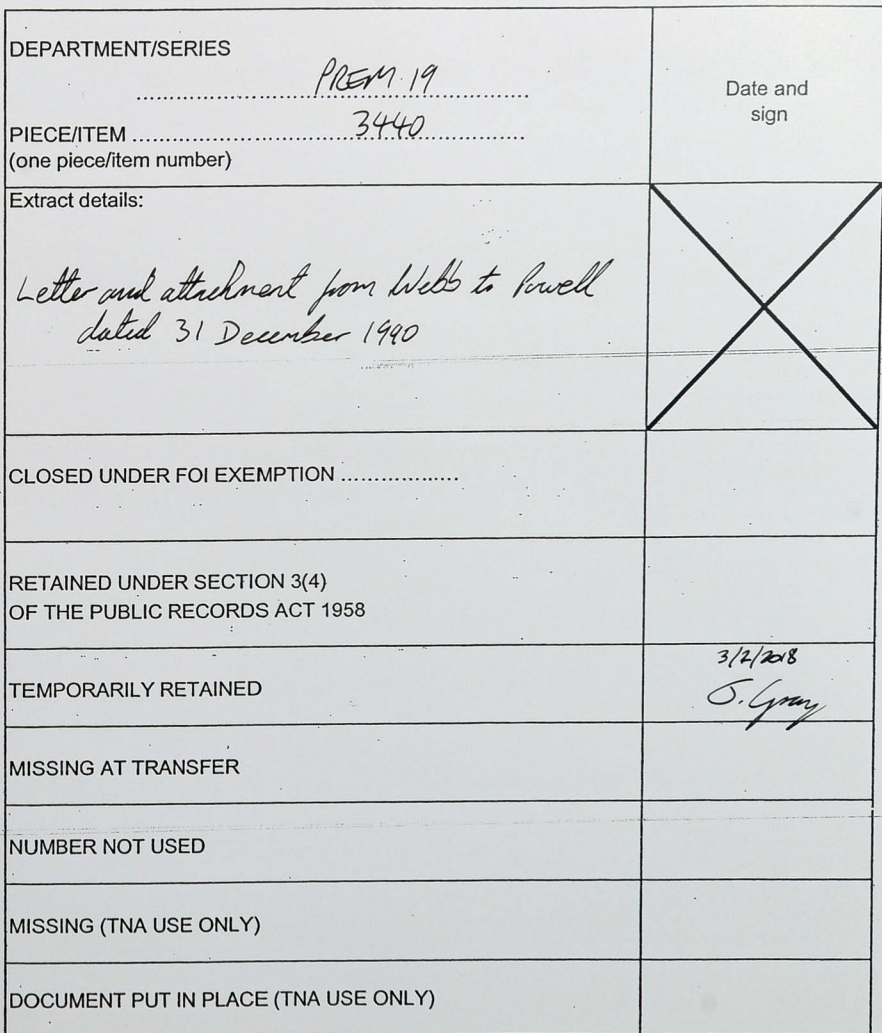 DEPARTMENT/SERIES
PREM 19
Date and
sign
PIECE/ITEM
3440
(one piece/item number)
Extract details:
Letter and attachment from Webb to Powell
dated 31 December 1990
CLOSED UNDER FOI EXEMPTION ..................
RETAINED UNDER SECTION 3(4)
OF THE PUBLIC RECORDS ACT 1958
TEMPORARILY RETAINED
3/2/2018
J. Gray
MISSING AT TRANSFER
NUMBER NOT USED
MISSING (TNA USE ONLY)
DOCUMENT PUT IN PLACE (TNA USE ONLY)